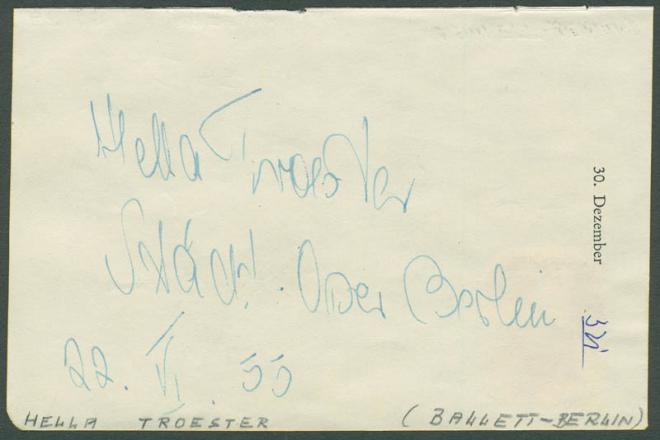 Hella Troester
Städt. Oper Berlin
22. VI. 55
30. Dezember
HELLA TROESTER (BALLETT-BERLIN)